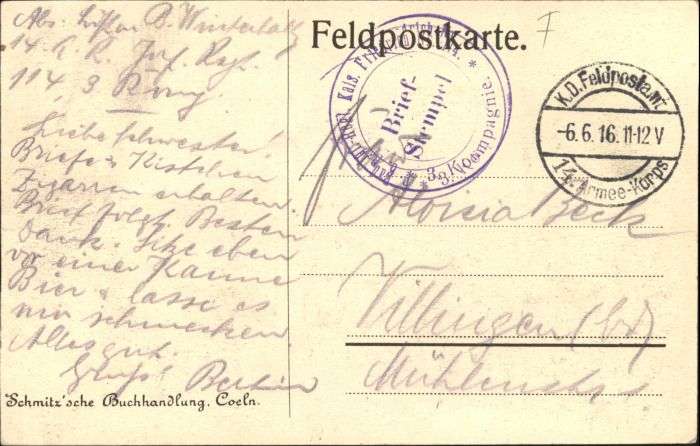 Feldpostkarte.
Abs.
14. A. K. Inf. Regt.
114, 3. Komp
Liebe Schwester!
Brief & Kistchen
Zigarren erhalten.
Brief folgt. Besten
Dank. Sitze eben
vor einer Kanne
Bier & lasse es
mir schmecken.
Alles gut.
Gruß!
Schmitz'sche Buchhandlung, Coeln.
Brief-
Stempel
Kais. Friedrich
3. Kompagnie.
K.D. Feldpostamt
-6.6.16. 11-12 V
14. Armee-Korps
Aloisia Beck
Villingen